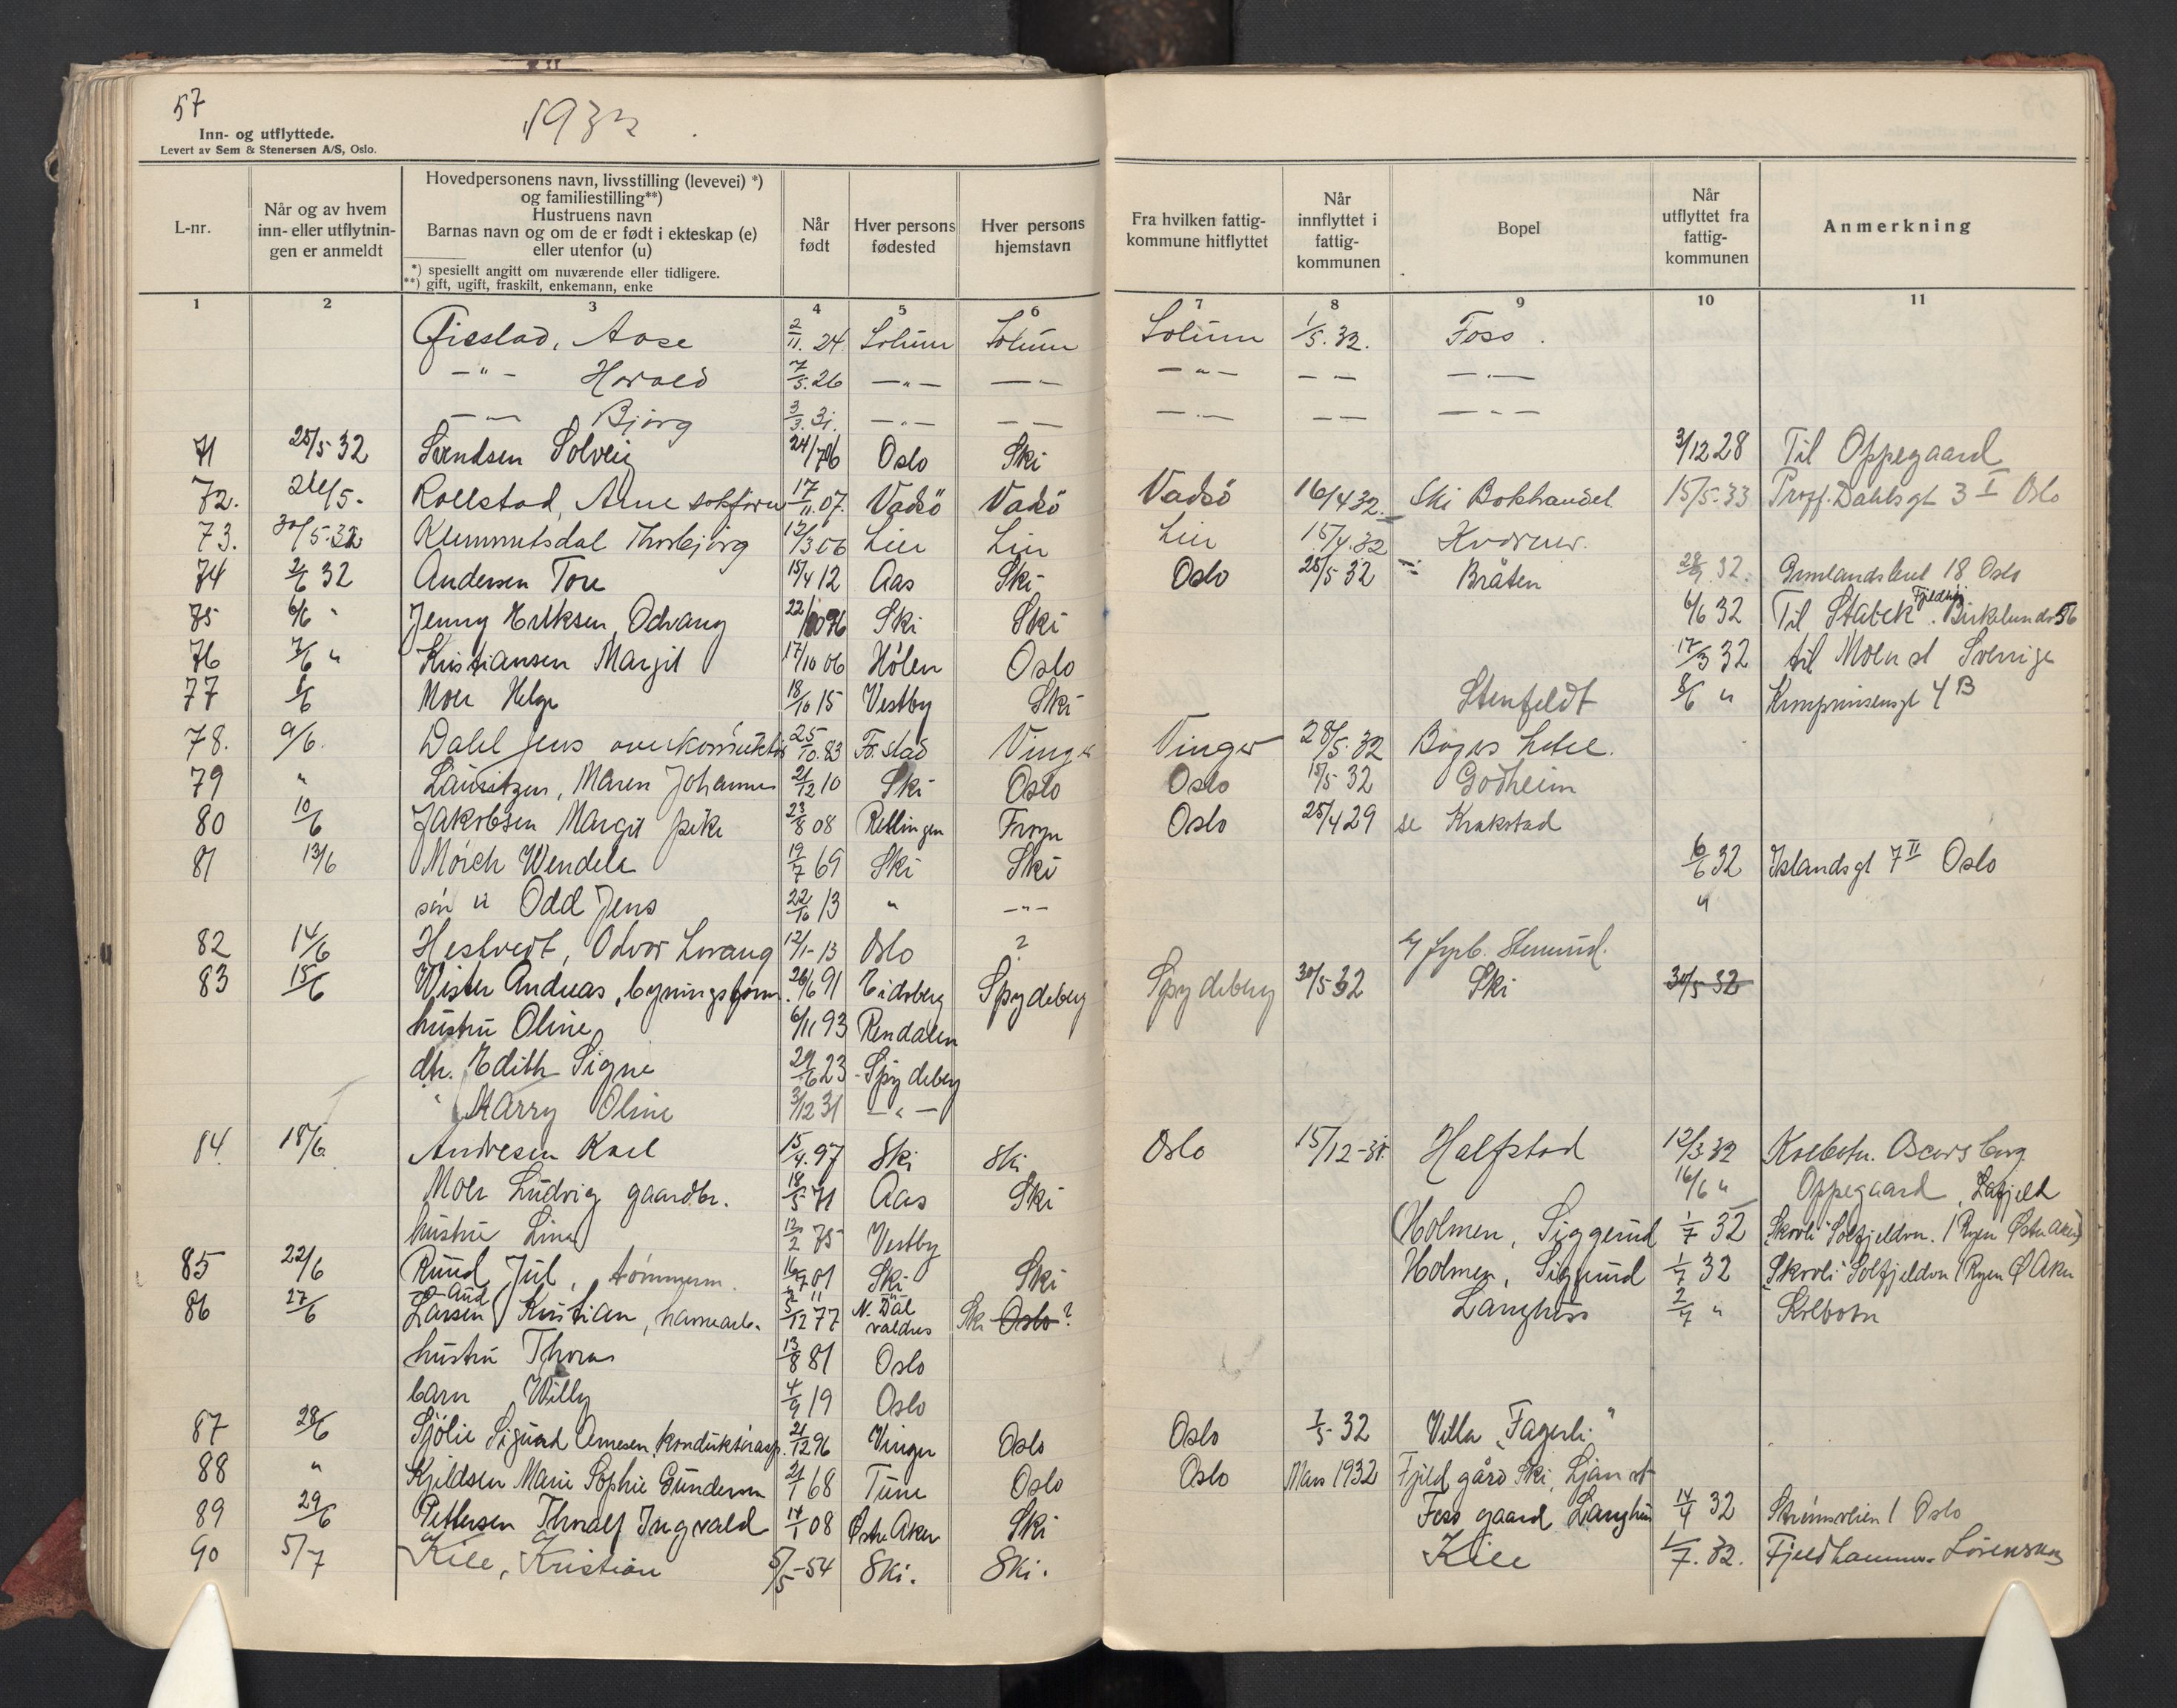 57
1932
Inn- og utflyttede.
Levert av Sem & Stenersen A/S, Oslo.
L-nr. Når og av hvem inn- eller utflytningen er anmeldt Hovedpersonens navn, livsstilling (levevei) *) og familiestilling**) Hustruens navn Barnas navn og om de er født i ekteskap (e) eller utenfor (u) *) spesielt angitt om nuværende eller tidligere. **) gift, ugift, fraskilt, enkemann, enke Når født Hver persons fødested Hver persons hjemstavn Fra hvilken fattigkommune hitflyttet Når innflyttet i fattigkommunen Bopel Når utflyttet fra fattigkommunen Anmerkning
1 2 3 4 5 6 7 8 9 10 11
Aase 2/11. 24. Solum Solum Solum 1/5. 32. Foss.
-"- Harald 7/5. 26 -"- -"- -"- - - -"-
-"- Bjørg 3/3. 31. -"- - - -"- - - -"-
71 25/5 32 Svendsen Solveig 24/7 06 Oslo Ski 3/12 28 Til Oppegaard
72. 26/5- Rollstad, Arne 17/11. 07. Vadsö Vadsö Vadsö 16/4 32. Ski Bokhandel 15/5. 33 Proff. Dahlsgt 3 I Oslo
73. 30/5-32 Klemmetsdal Thorbjørg 12/3 06 Lier Lier Lier 15/4. 32
74 2/6 32 Andersen Tore 15/4 12 Aas Ski Oslo 25/5 32 Bråten 32. 18 Oslo
75 6/6 " Jenny Eriksen, Odvang 22/10 96 Ski Ski 6/6 32 Til Stabek. Birkelundv 56
76 7/6 " Kristiansen Margit 17/10 06 Hölen Oslo 17/3 32 til Sverige
77 8/6 Moen Helge 18/10 15 Vestby Ski Stenfeldt 8/6 " Kronprinsensgt 4 B
78. 9/6. Dahl Jens overkonduktör 25/10. 83 Fr. stad Vinger Vinger 28/5. 32 Hotel.
79 " Lauritzen, Maren Johanne 21/12 10 Ski Oslo Oslo 15/5 32 Godheim
80 10/6 Jakobsen Margit pike 23/8 08 Frogn Oslo 25/4 29 se Krakstad
81 13/6 Mörch Wendela 19/7 69 Ski Ski 6/6 32 Islandsgt 7 II Oslo
sön " Odd Jens 22/10 13 " -"- "
82 14/6 Hestvedt, Odvar 12/1-13 Oslo ?
83 15/6 Wister Andreas, bygningssnm. 26/6 91 Eidsberg Spydeberg Spydeberg 30/5 32 Ski 30/5 32
hustru Oline 6/11 93 Rendalen
dtr. Edith Signe 29/6 23 Spydeberg
" Marry Oline 3/12 31 -"-
84 18/6 Andresen Karl 15/4. 97 Ski Ski Oslo 15/12-31. Halfstad 12/3. 32 Kolbotn. Oscarsborg
Moen Ludvig gaardbr. 18/5 71 Aas Ski 16/6 " Oppegaard,
hustru Lina 12/2 75 Vestby Holmen, Siggerud 1/7 32 "Skovli" Solfjeldvn. 1 Ryen Østre Aker
85 22/6 Ruud Jul, tömmerm. 16/7 01 Ski Ski Holmen, Siggerud 1/7 32 "Skovli" Solfjeldvn 1 Ryen Ø Aker
-"- Aud
86 27/6 Larsen Kristian, havnearb. 5/12 77 N. Dal valdres Ski Oslo ? Langhus 2/7 " Kolbotn
hustru Thora 13/8 81 Oslo
barn Willy 4/9 19 Oslo
87 28/6 Sjölie Sigurd Arnesen, konduktörasp. 21/12 96 Vinger Oslo Oslo 1/5 32 Villa "Fagerli"
88 " Kjeldsen Marie Sophie Gundersen 21/1 68 Tune Oslo Oslo Mars 1932 Fjeld gård Ski,
89 29/6 Pettersen Thoralf Ingvald 14/1 08 Østre Aker Ski Foss gaard Langhus 14/4 32 Strömsveien 1 Oslo
90 5/7 Kile, Kristian 5/5-54 Ski. Ski. Kile 1/7. 32. Fjeldhammer. Lörenskog